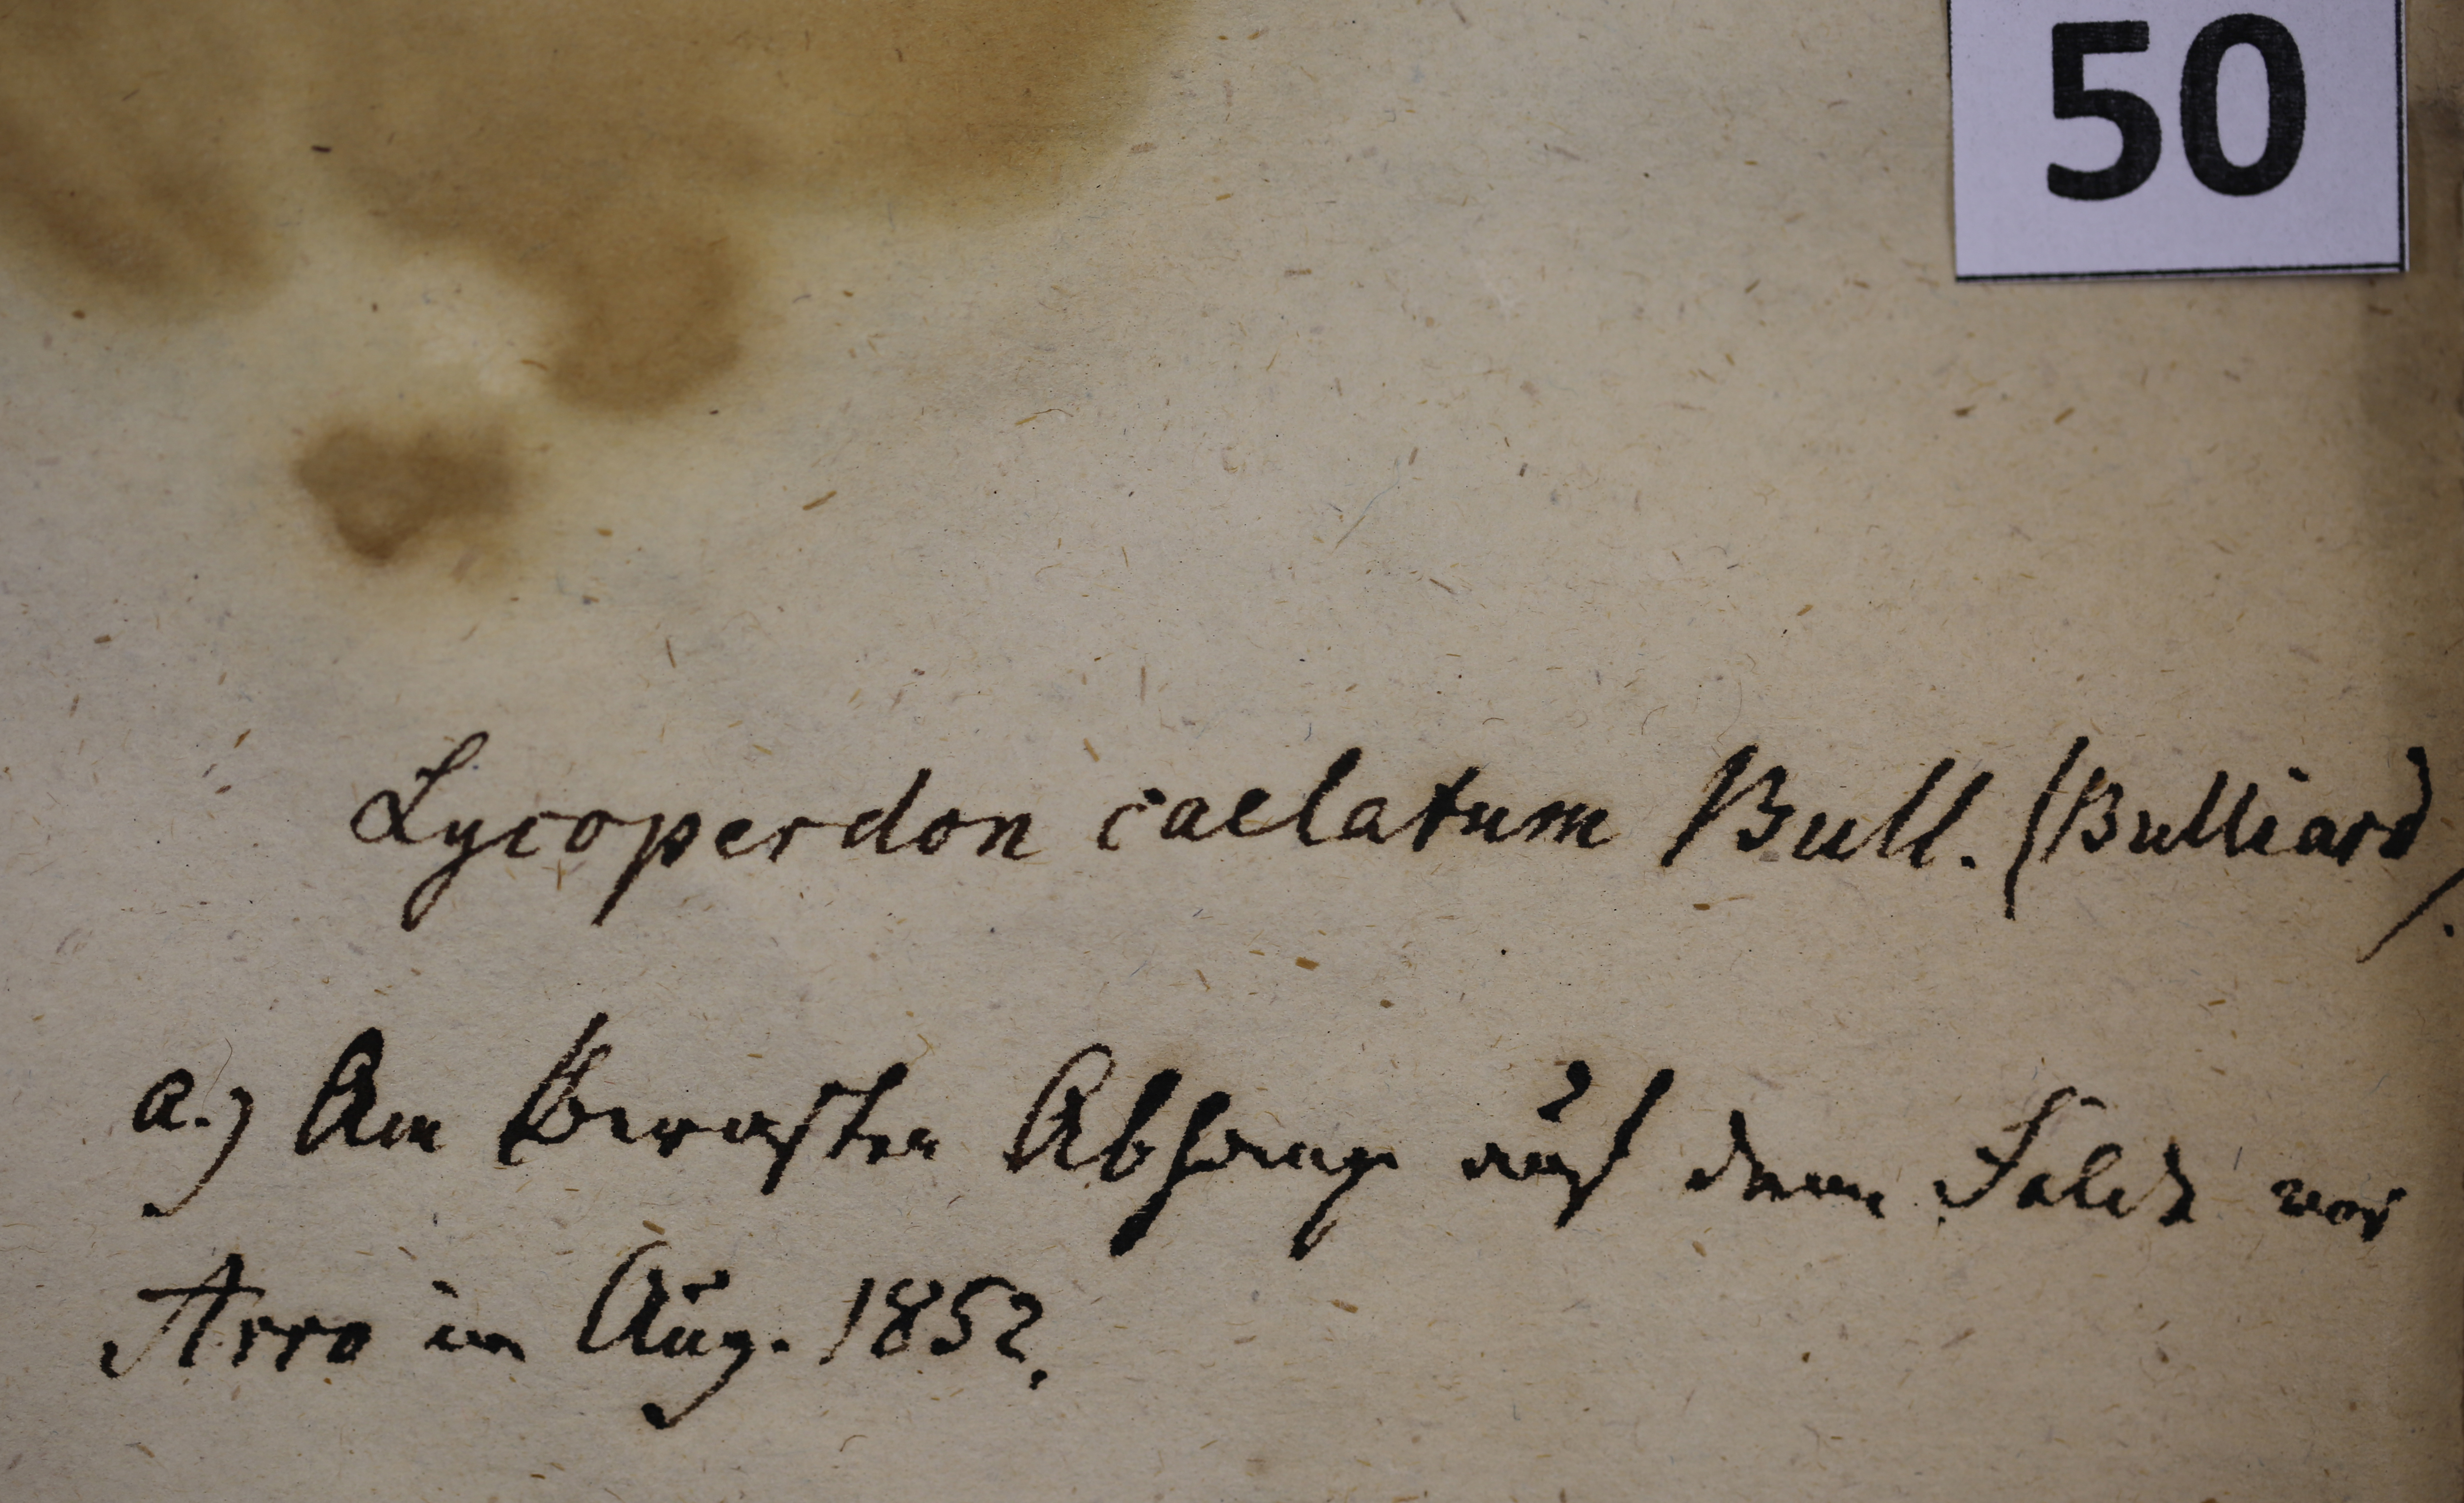 50
Lycoperdon caelatum Bull. (Bulliard).
a.) Am Abhange auf dem Felde vor
Arro im Aug. 1852.